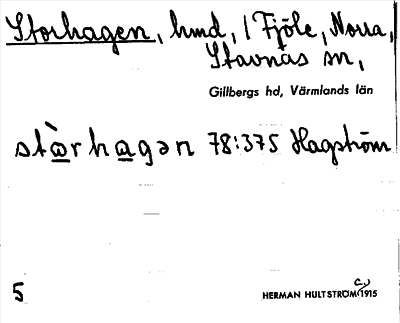 Storhagen, hmd, i Fjöle, Norra,
Stavnäs sn,
Gillbergs hd, Värmlands län
stòrhagən 78:375 Hagström
5
HERMAN HULTSTRÖM 1915